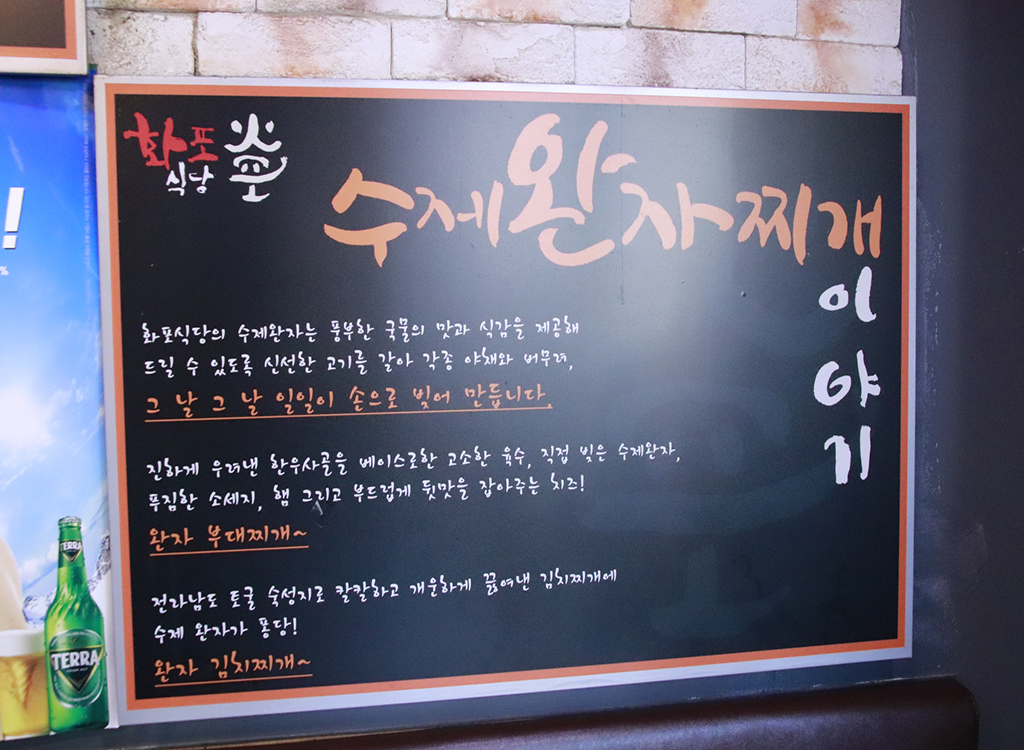 화포
식당
수제완자찌개
이야기
화포식당의 수제완자는 풍부한 국물의 맛과 식감을 제공해
드릴 수 있도록 신선한 고기를 갈아 각종 야채와 버무려,
그 날 그 날 일일이 손으로 빚어 만듭니다.
진하게 우려낸 한우사골을 베이스로한 고소한 육수, 직접 빚은 수제완자,
푸짐한 소세지, 햄 그리고 부드럽게 뒷맛을 잡아주는 치즈!
완자 부대찌개~
전라남도 토굴 숙성지로 칼칼하고 개운하게 끓여낸 김치찌개에
수제 완자가 퐁당!
완자 김치찌개~
!
%
TERRA
TERRA